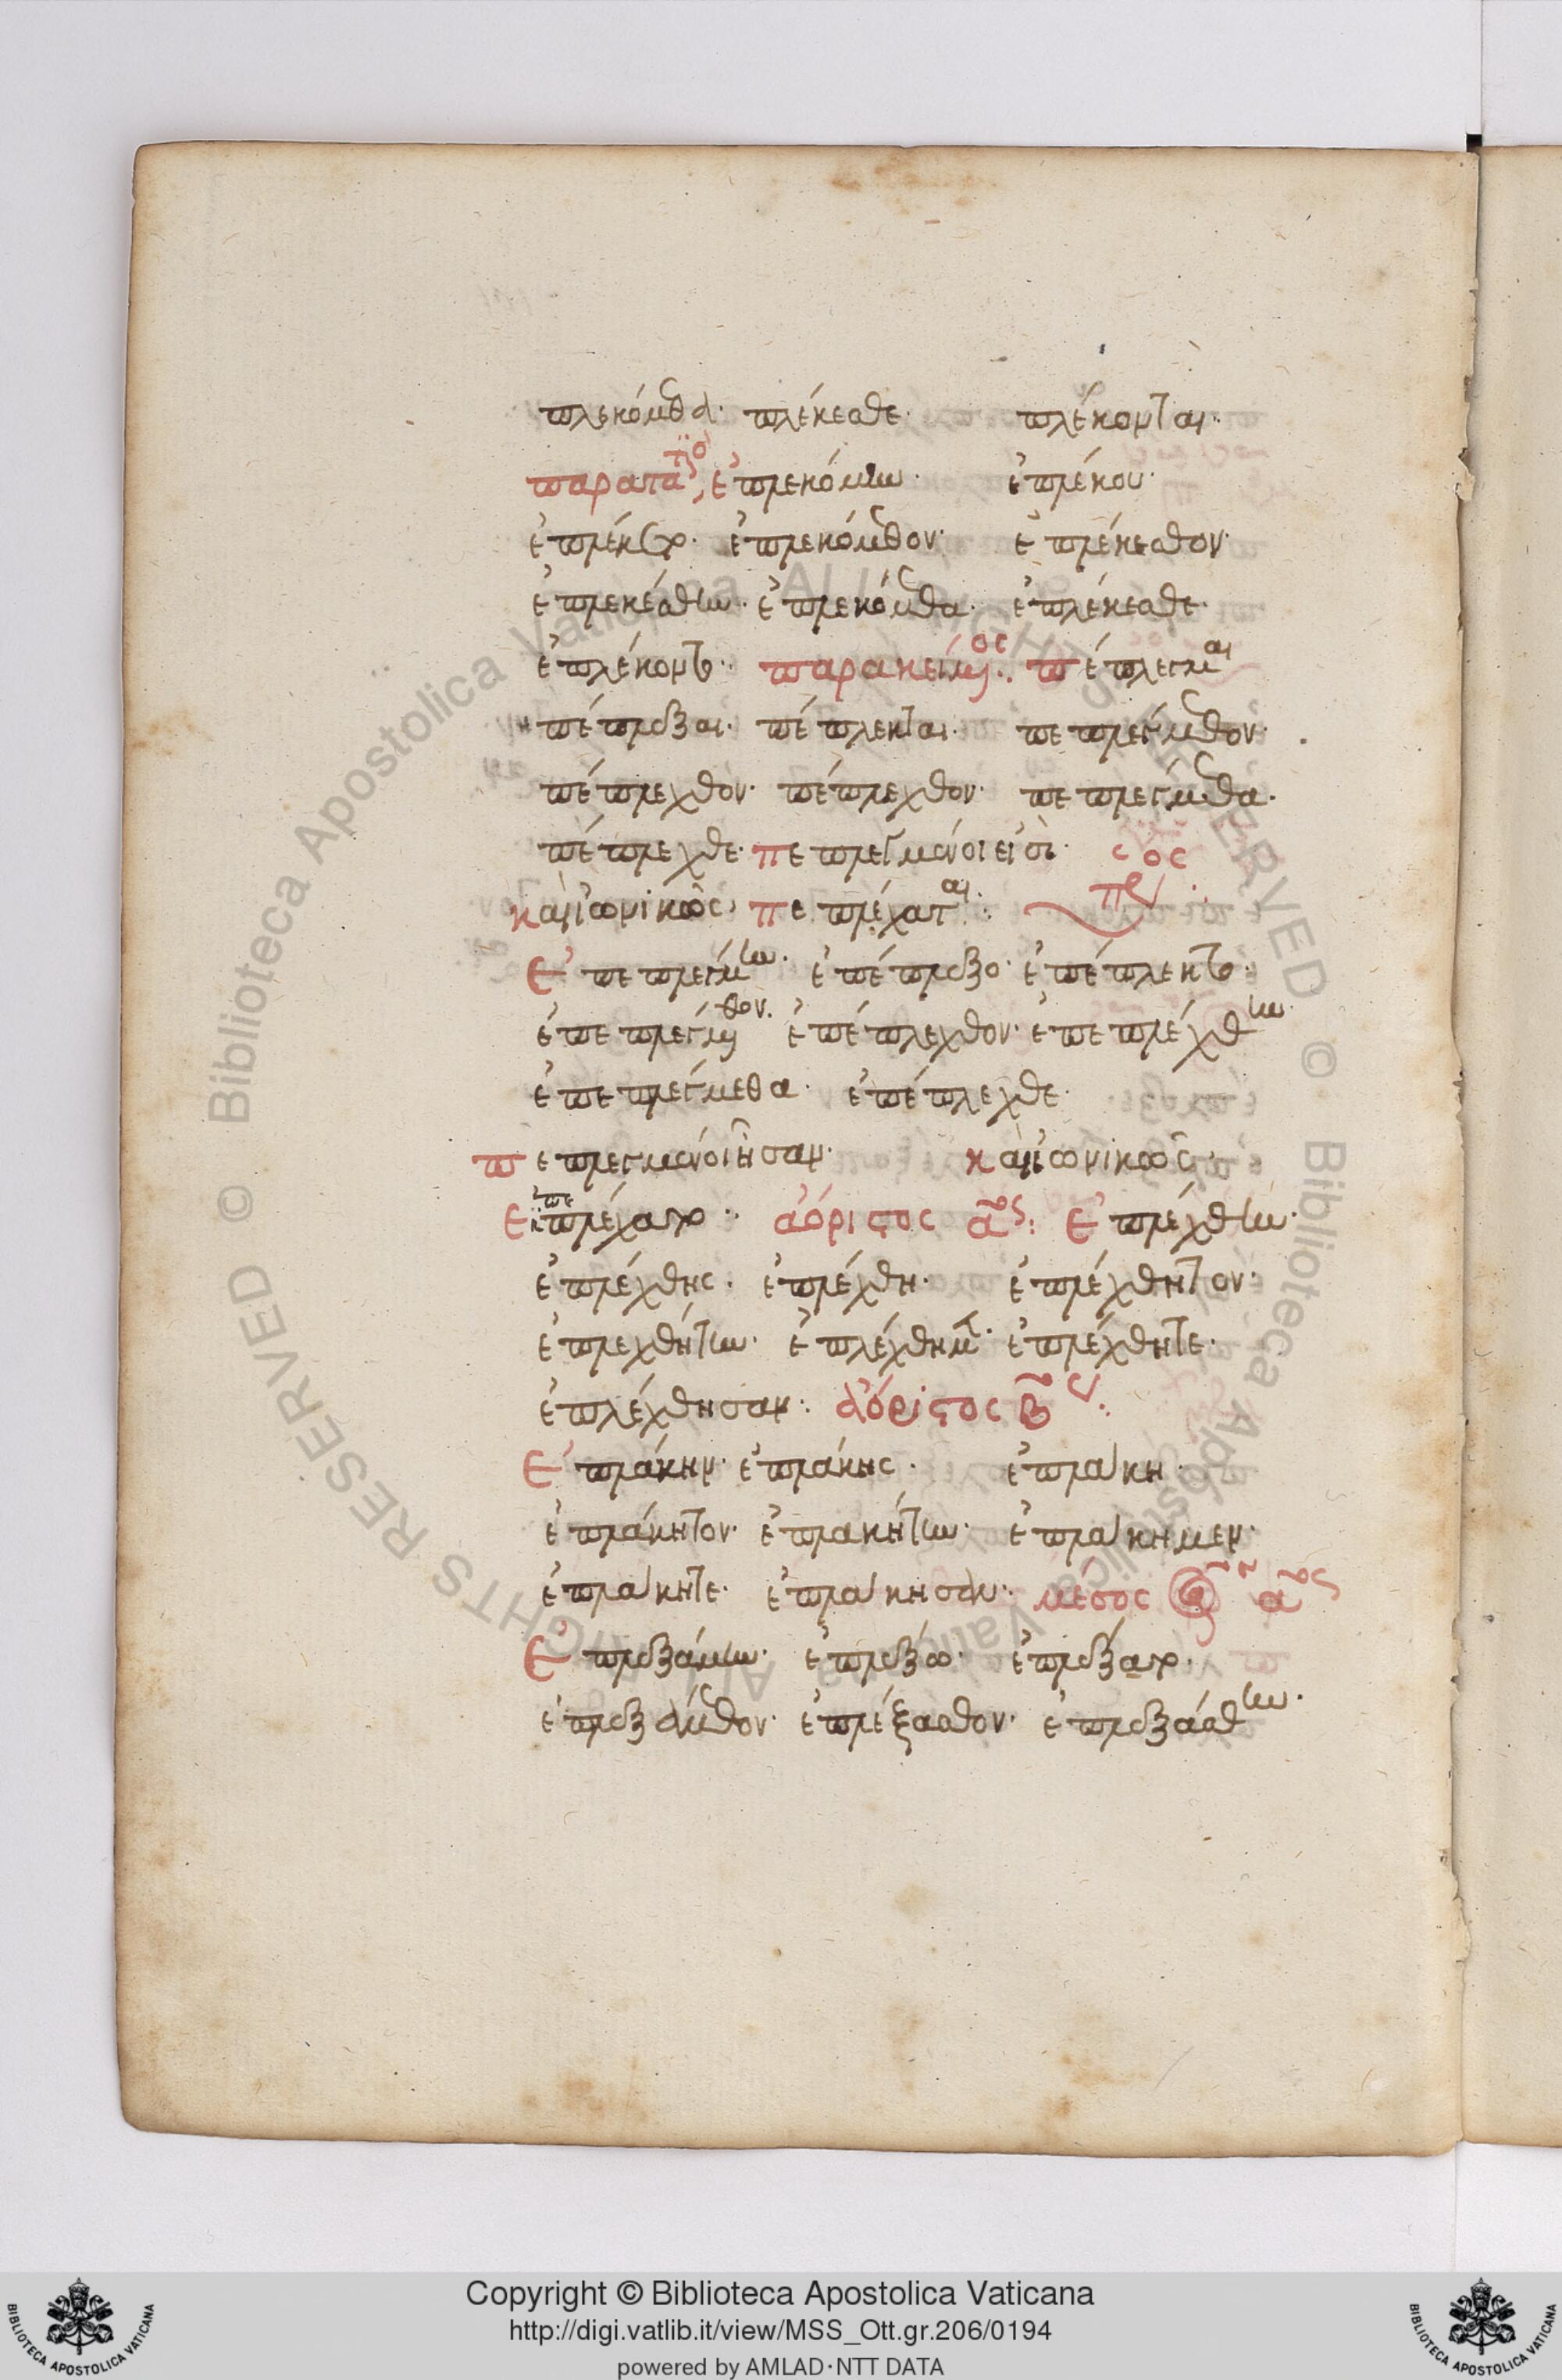 πλεκόμεθα· πλέκεσθε· πλέκονται·
παρατατικός, ἐπλεκόμην· ἐπλέκου·
ἐπλέκετο· ἐπλεκόμεθον· ἐπλέκεσθον·
ἐπλεκέσθην· ἐπλεκόμεθα· ἐπλέκεσθε·
ἐπλέκοντο· παρακείμενος· πέπλεγμαι
πέπλεξαι· πέπλεκται· πεπλέγμεθον·
πέπλεχθον· πέπλεχθον· πεπλέγμεθα·
πέπλεχθε· πεπλεγμένοι εἰσὶ·
καὶ ἰωνικῶς· πεπλέχαται·
Ἐπεπλέγμην· ἐπέπλεξο· ἐπέπλεκτο·
ἐπεπλέγμεθον· ἐπέπλεχθον· ἐπεπλέχθην·
ἐπεπλέγμεθα· ἐπέπλεχθε·
πεπλεγμένοι ἦσαν· καὶ ἰωνικῶς·
Ἐπεπλέχατο· ἀόριστος αος: Ἐπλέχθην·
ἐπλέχθης· ἐπλέχθη· ἐπλέχθητον·
ἐπλεχθήτην· ἐπλέχθημεν· ἐπλέχθητε·
ἐπλέχθησαν: ἀόριστος βος:
Ἐπλάκην· ἐπλάκης· ἐπλάκη·
ἐπλάκητον· ἐπλακήτην· ἐπλάκημεν·
ἐπλάκητε· ἐπλάκησαν· μέσος αος
Ἐπλεξάμην· ἐπλέξω· ἐπλέξατο·
ἐπλεξάμεθον· ἐπλέξασθον· ἐπλεξάσθην·
Copyright © Biblioteca Apostolica Vaticana
http://digi.vatlib.it/view/MSS_Ott.gr.206/0194
powered by AMLAD·NTT DATA
BIBLIOTECA APOSTOLICA VATICANA
BIBLIOTECA APOSTOLICA VATICANA
© Biblioteca Apostolica Vaticana ALL RIGHTS RESERVED © Biblioteca Apostolica Vaticana ALL RIGHTS RESERVED